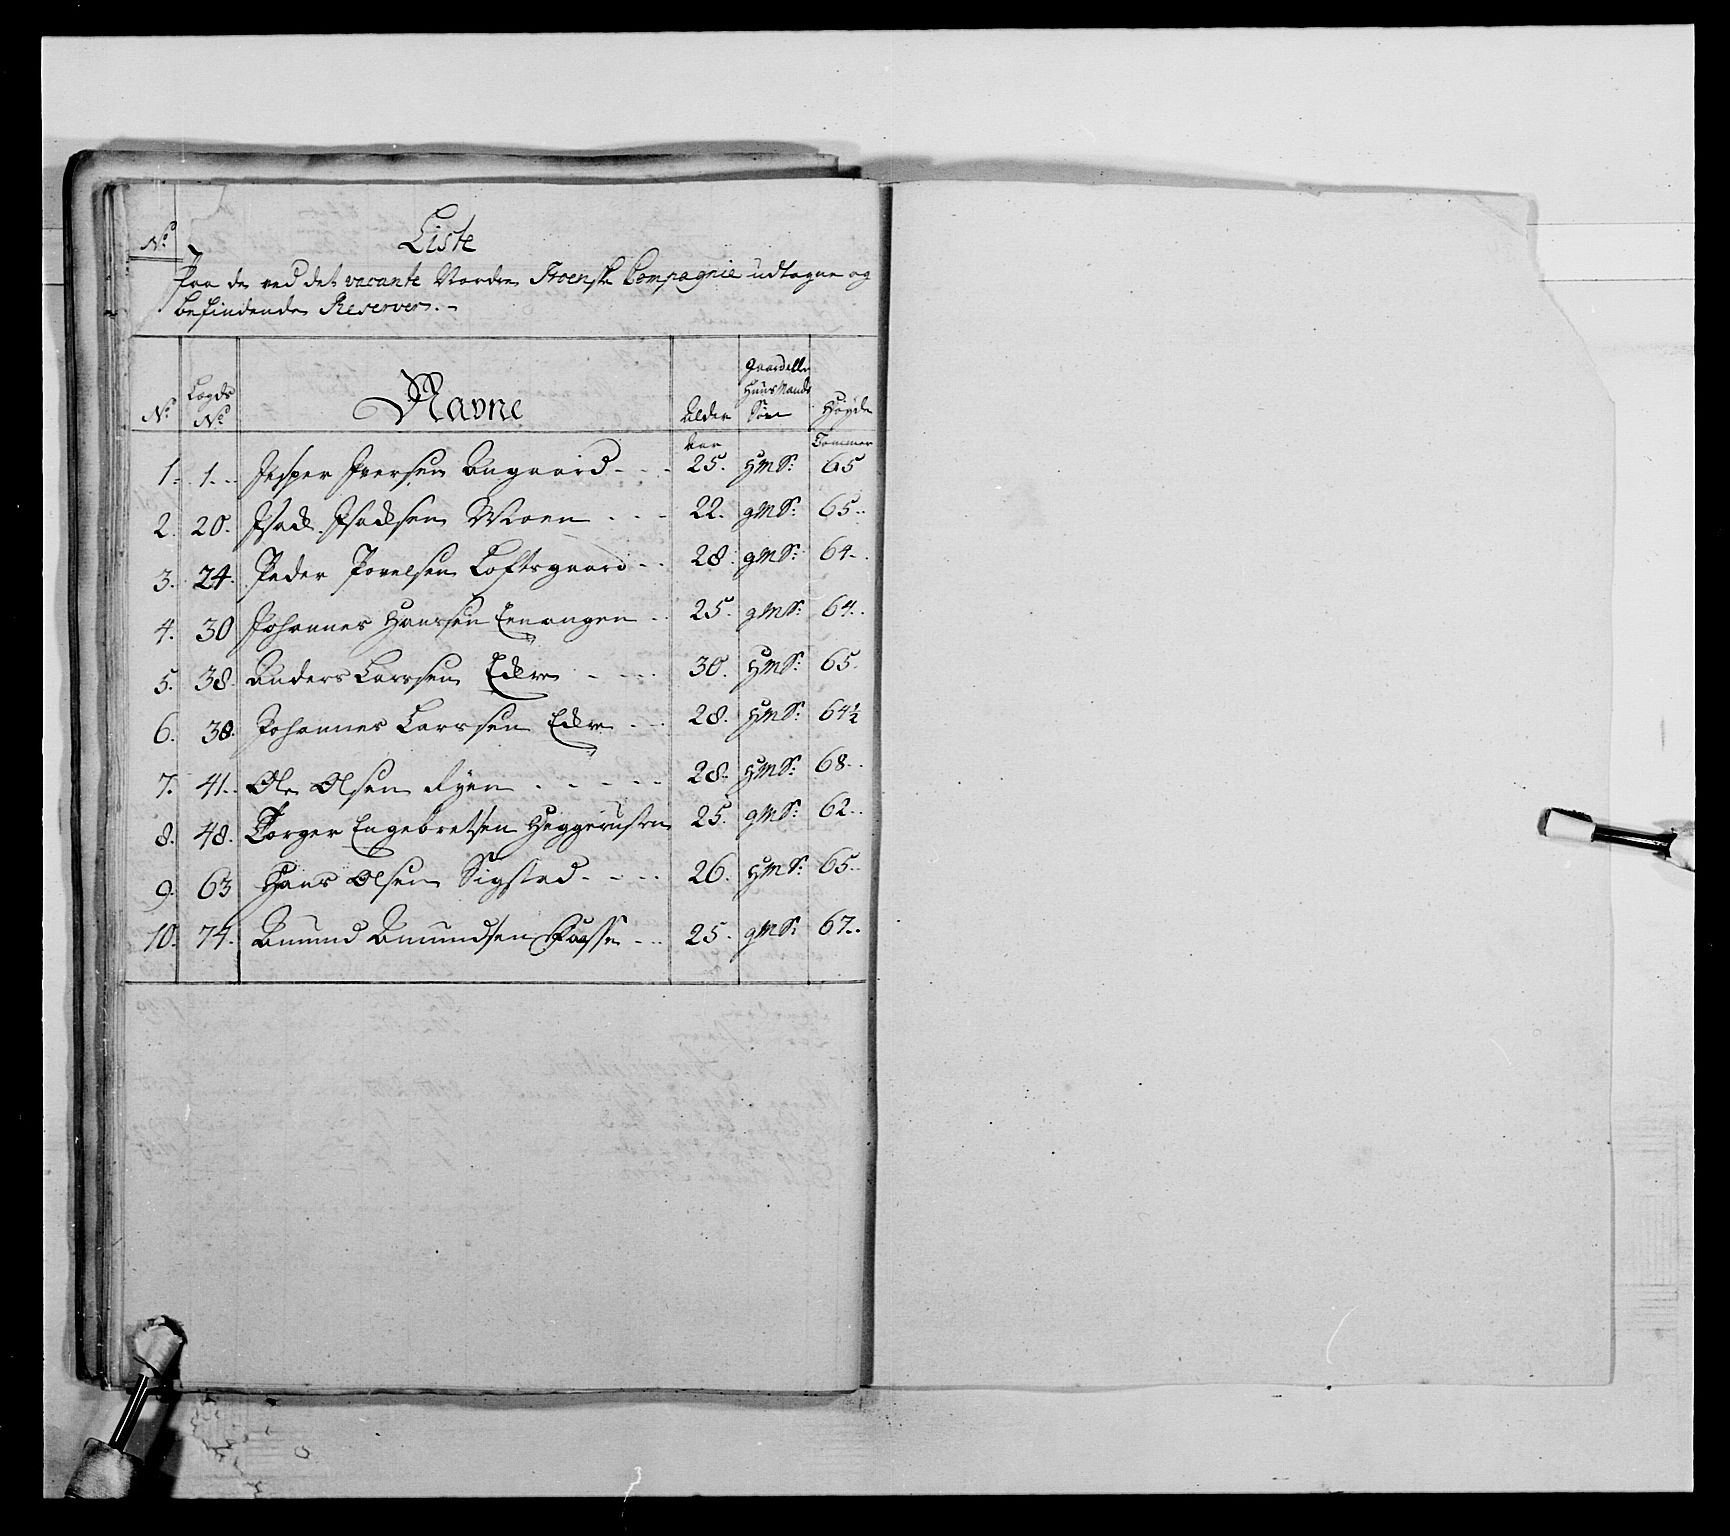 No
Liste
Paa de ved det vacante Nordre Froenske Compagnie udtagne og
befindende Reserver. -
No Lægds No Navne Alder Gaard eller Huus Mands Søn Høyde
Aar Tommer
1. 1. Jesper Iversen Aagaard 25. HMS: 65
2. 20. Isach Isachsen Moen 22. gMS: 65.
3. 24. Peder Povelsen Loftsgaard 28. gMS: 64.
4. 30 Johannes Hansen 25. gMS: 64.
5. 38. Anders Larssen 30. HMS: 65.
6. 38. Johannes Larssen 28. HMS: 64½
7. 41. Ole Olsen Ryen 28. HMS: 68.
8. 48. Torger Engebretsen 25. gMS: 62.
9. 63 Hans Olsen Sigstad 26. HMS: 65.
10. 74. Amund Amundsen Faasse 25. gMS: 67.